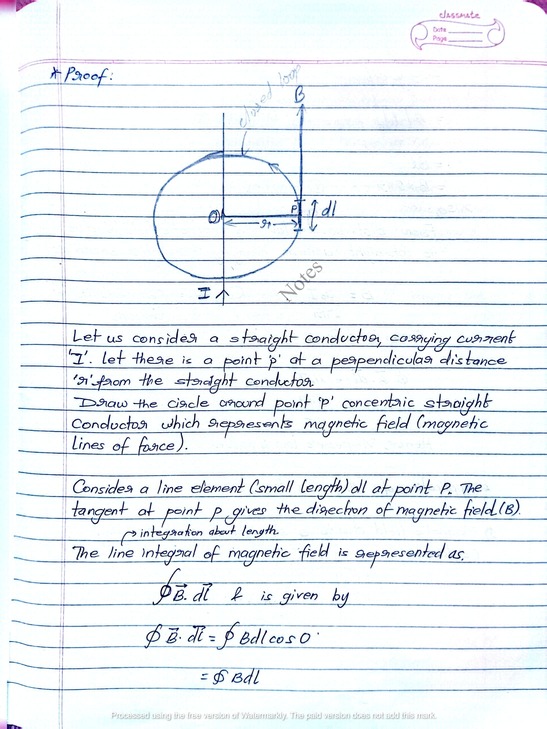 classmate
Date
Page
* Proof:
closed loop
B
P
dl
O
r
I
Notes
Let us consider a straight conductor, carrying current
'I'. let there is a point 'p' at a perpendicular distance
'r' from the straight conductor
Draw the circle around point 'P' concentric straight
conductor which represents magnetic field (magnetic
lines of force).
Consider a line element (small length) dl at point P. The
tangent at point p gives the direction of magnetic field.(B).
→ integration about length
The line integral of magnetic field is represented as,
∮ B⃗. dl⃗ & is given by
∮ B⃗. dl⃗ = ∮ Bdl cos 0°
= ∮ Bdl
Processed using the free version of Watermarkly. The paid version does not add this mark.